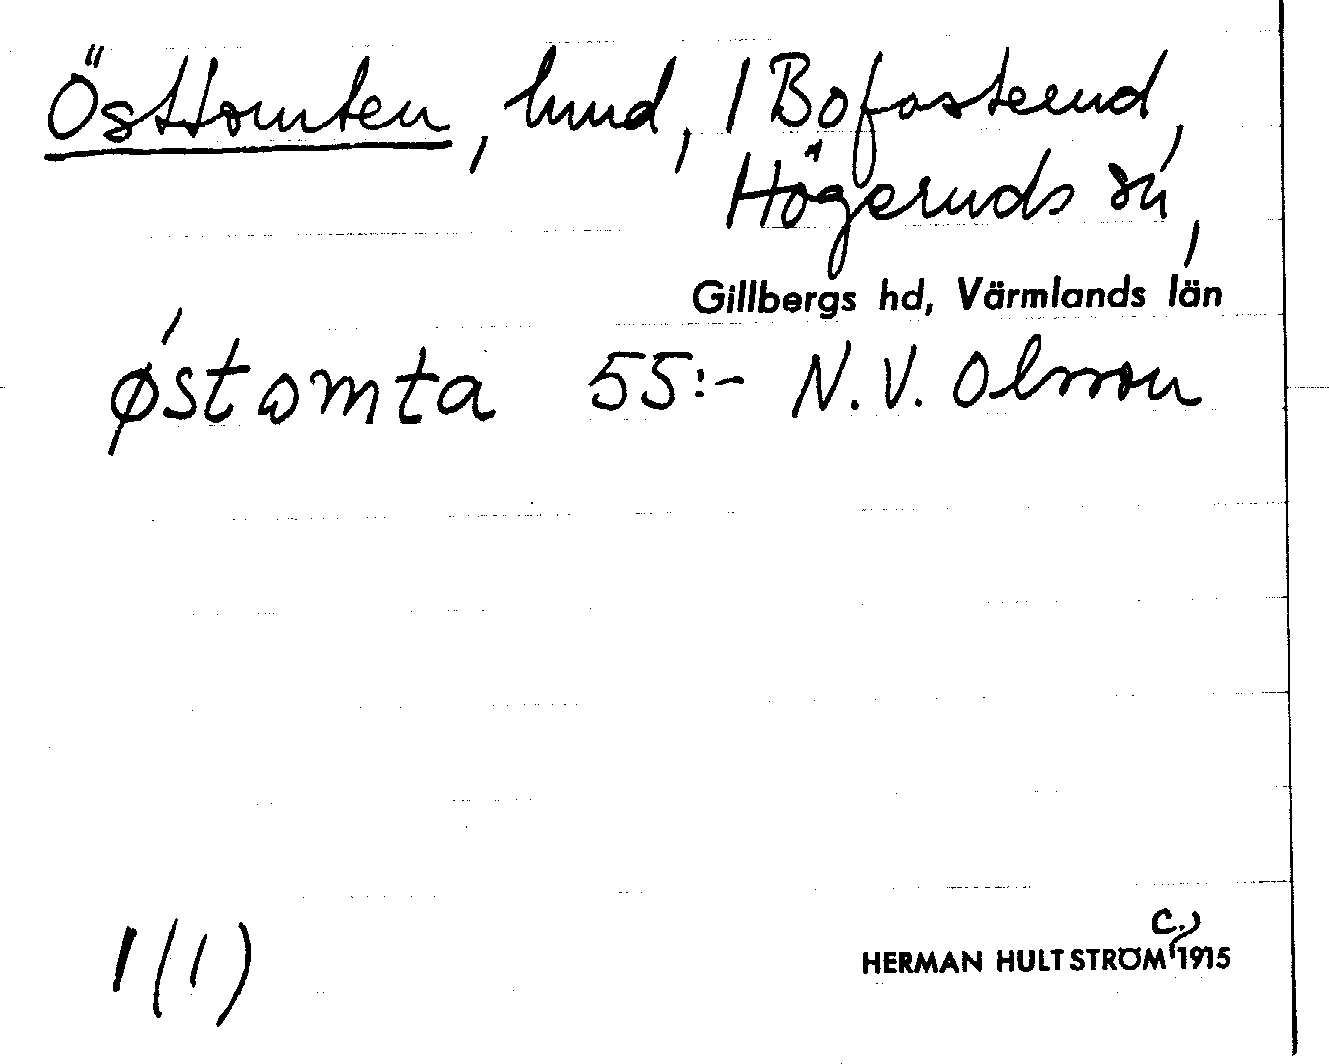 Östtomten, lund, 1 Bofasterud,
Högeruds sn,
Gillbergs hd, Värmlands län
ǿstomta 55:- N. V. Olsson
1(1)
c.
HERMAN HULTSTRÖM 1915